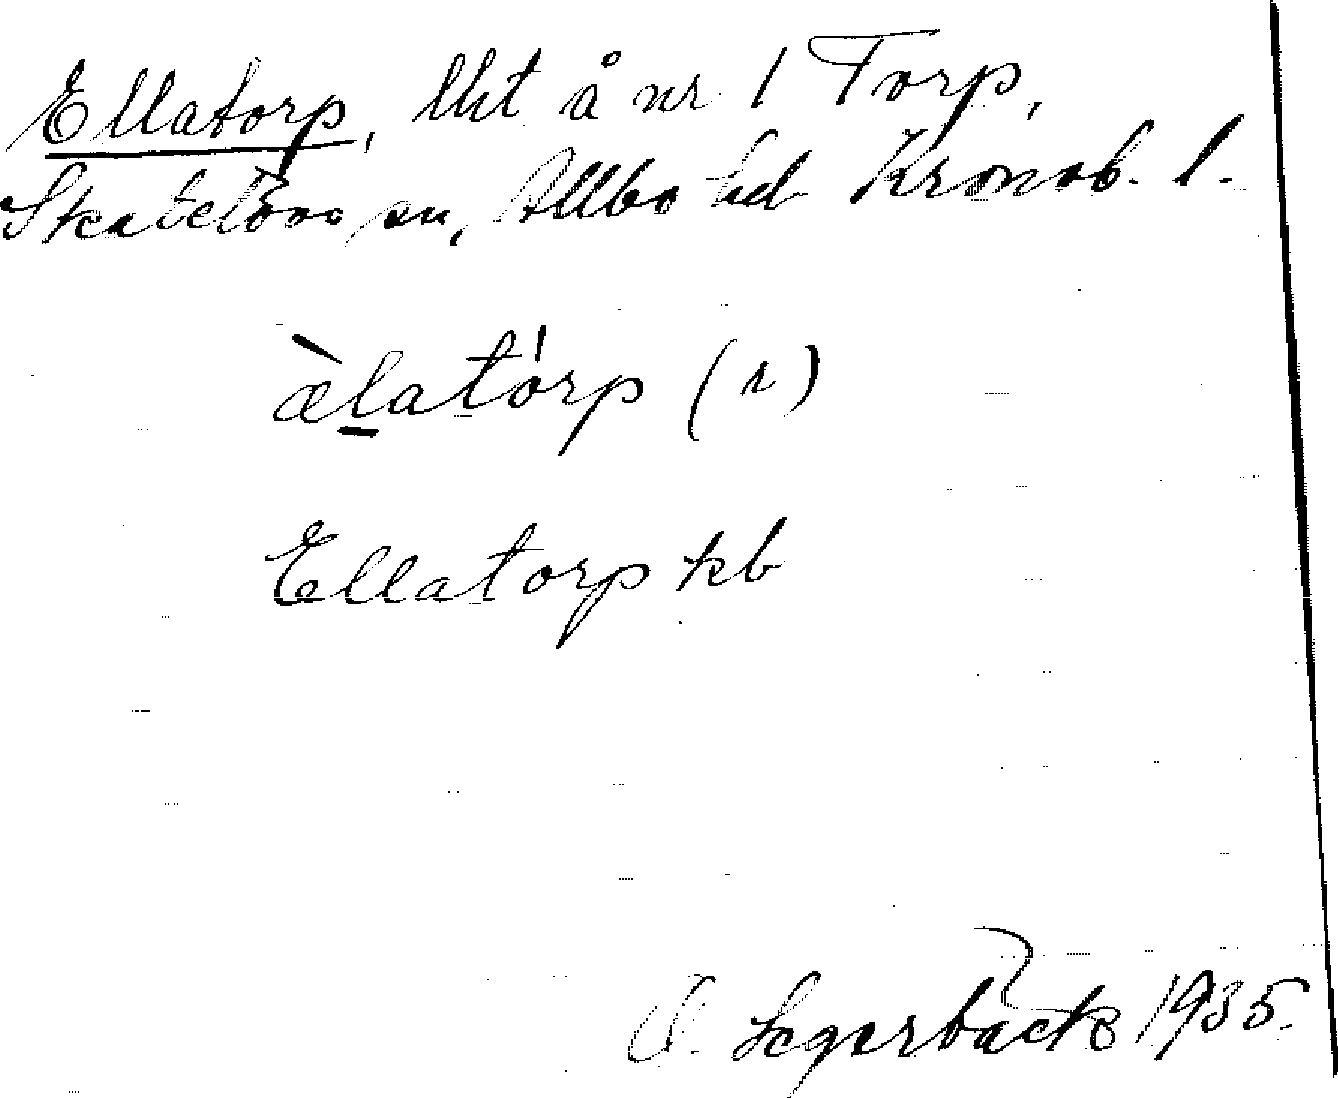 Ellatorp, lht å nr 1 Torp,
Skatelövs sn, Allbo hd Kronob. l.
æ̀latórp (r)
Ellatorp kb
Segerbäck 1935.